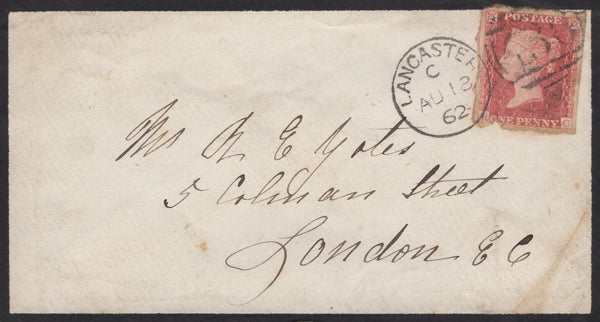 POSTAGE
ONE PENNY
LANCASTER
C
AU 18
62
Mr R E Yates
5 Colman Street
London E C